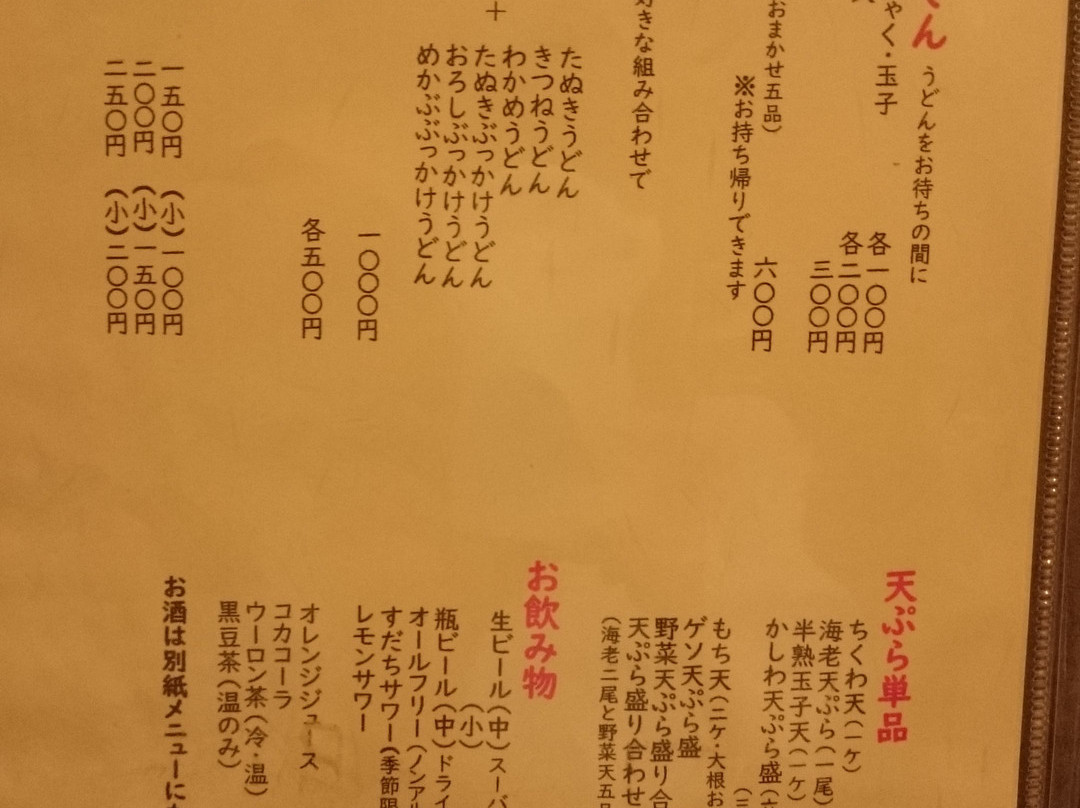 ん うどんをお待ちの間に
ゃく・玉子
各一〇〇円
各二〇〇円
三〇〇円
おまかせ五品）
六〇〇円
※お持ち帰りできます
きな組み合わせで
＋
たぬきうどん
きつねうどん
わかめうどん
たぬきぶっかけうどん
おろしぶっかけうどん
めかぶぶっかけうどん
一〇〇〇円
各五〇〇円
一五〇円 （小）一〇〇円
二〇〇円 （小）一五〇円
二五〇円 （小）二〇〇円
天ぷら単品
ちくわ天（一ケ）
海老天ぷら（一尾）
半熟玉子天（一ケ）
かしわ天ぷら盛（
もち天（二ケ・大根お
ゲソ天ぷら盛
野菜天ぷら盛り合
天ぷら盛り合わせ
（海老二尾と野菜天五品
お飲み物
生ビール（中）スーパ
（小）
瓶ビール（中）ドライ
オールフリー（ノンアル
すだちサワー（季節限
レモンサワー
オレンジジュース
コカコーラ
ウーロン茶（冷・温）
黒豆茶（温のみ）
お酒は別紙メニューに